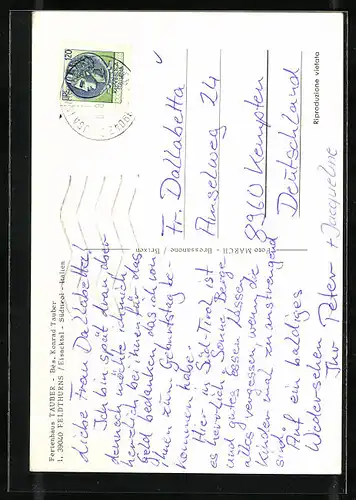 Ferienhaus TAUBER - Bes. Konrad Tauber
I. 39040 FELDTHURNS / Eisacktal - Südtirol - Italien
Liebe Frau Dallabetta!
Ich bin spät dran aber
dennoch möchte ich mich
herzlich bei ihnen für das
Geld bedanken das ich von
ihnen zum Geburtstag be-
kommen habe.
Hier in Süd-Tirol ist
es herrlich, Sonne, Berge
und gutes Essen lassen
alles vergessen, wenn die
Kinder mal zu anstrengend
sind.
Auf ein baldiges
Wiedersehen
Ihr Peter + Jacqueline
Foto MARCH - Bressanone / Brixen
120
Fr. Dallabetta
Amselweg 24
8960 Kempten
Deutschland
Riproduzione vietata